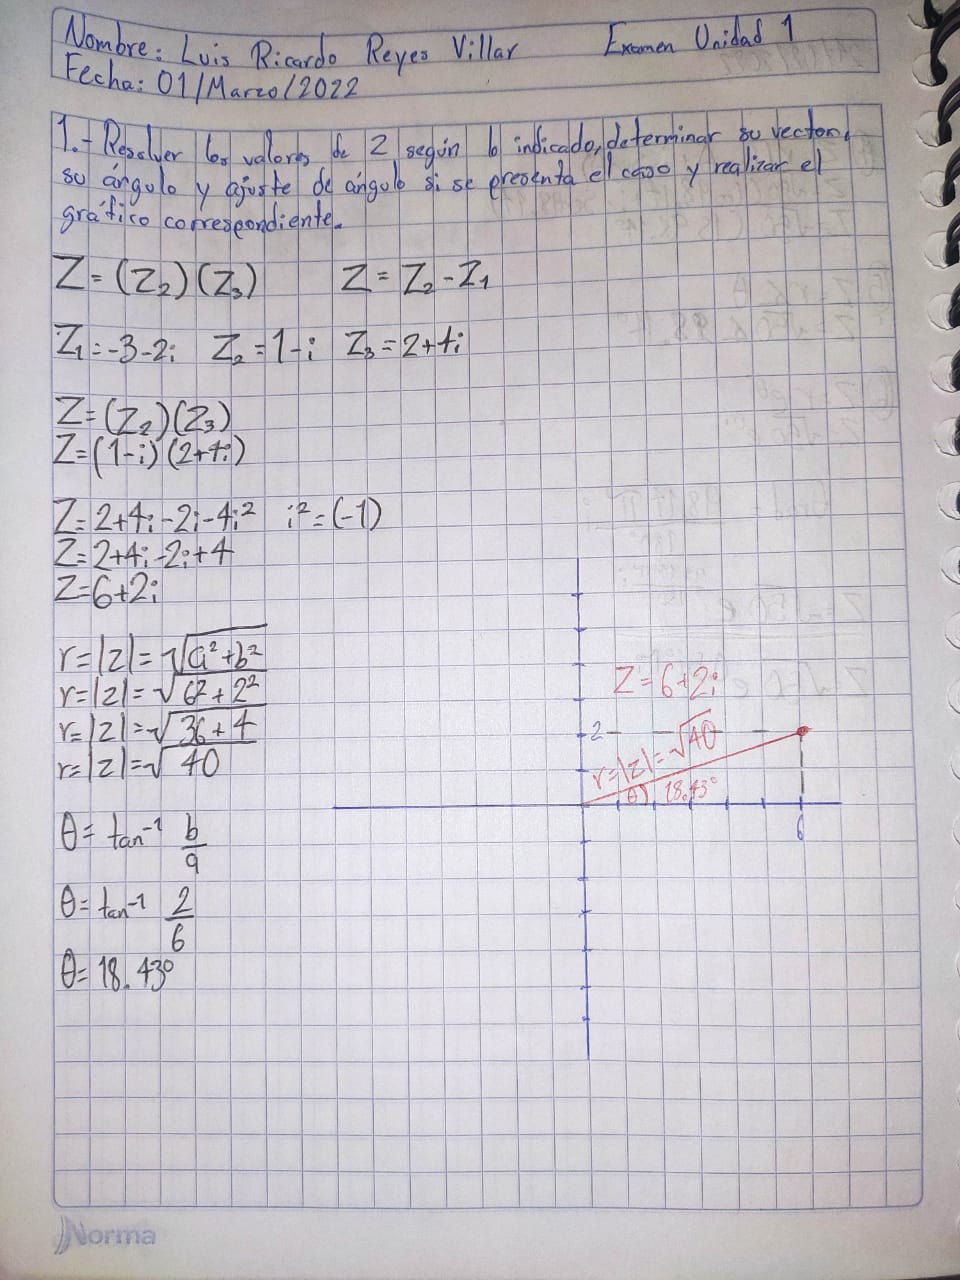 Nombre: Luis Ricardo Reyes Villar Examen Unidad 1
Fecha: 01/Marzo/2022
1.- Resolver los valores de Z según lo indicado, determinar su vector,
su ángulo y ajuste de ángulo si se presenta el caso y realizar el
gráfico correspondiente.
Z=(Z₂)(Z₃) Z=Z₂-Z₁
Z₁=-3-2i Z₂=1-i Z₃=2+4i
Z=(Z₂)(Z₃)
Z=(1-i)(2+4i)
Z=2+4i-2i-4i² i²=(-1)
Z=2+4i-2i+4
Z=6+2i
r=|z|=√a²+b²
r=|z|=√6²+2²
r=|z|=√36+4
r=|z|=√40
θ=tan⁻¹ b/a
θ=tan⁻¹ 2/6
θ=18.43°
Z=6+2i
2
r=|z|=√40
θ) 18.43°
6
Norma